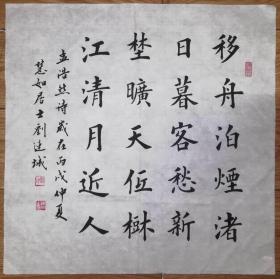 移舟泊煙渚
日暮客愁新
埜曠天低樹
江清月近人
孟浩然詩歲在丙戌仲夏
慧如居士劉城